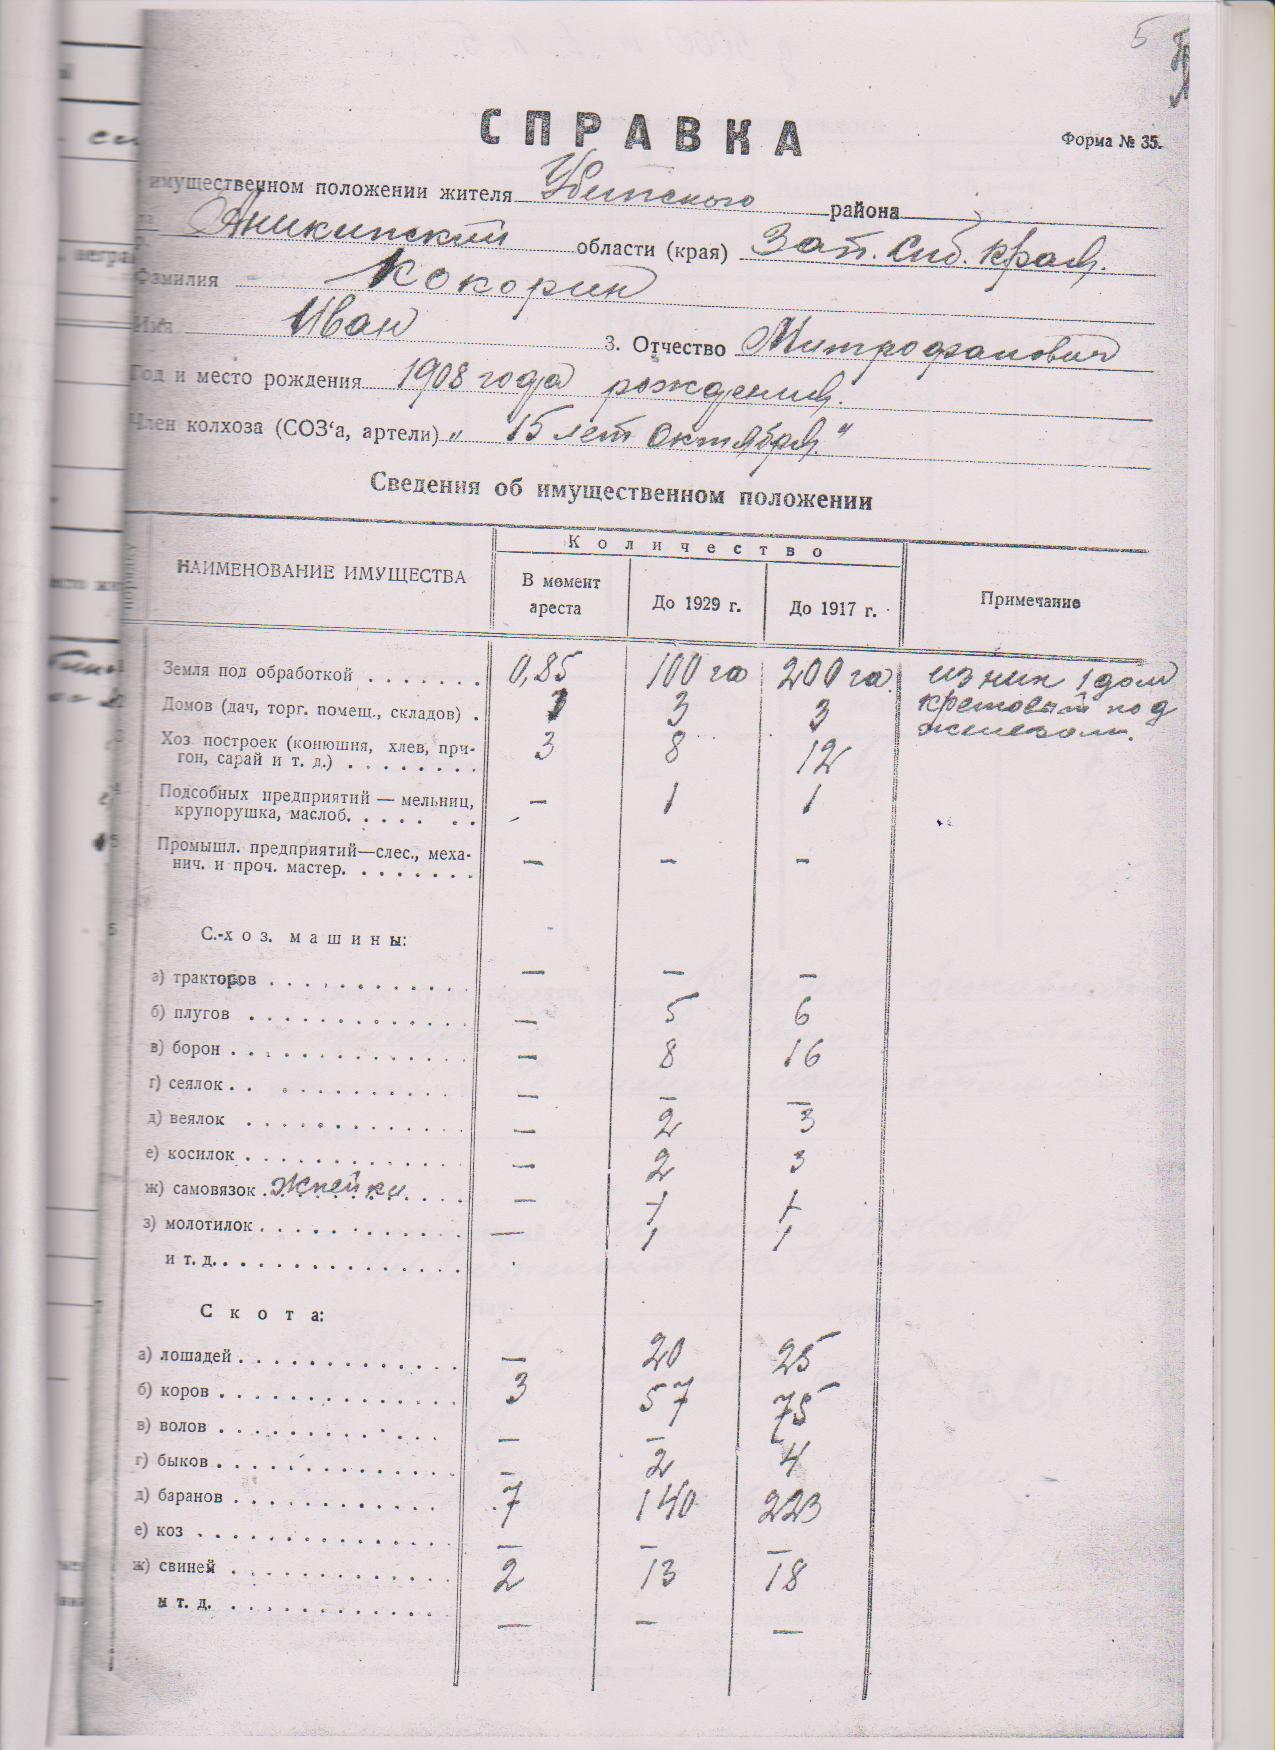 5
СПРАВКА
Форма № 35.
имущественном положении жителя Убинского района
Аникинский области (края) Зап. Сиб. края.
Фамилия Кокорин
Имя Иван 3. Отчество Митрофанович
Год и место рождения 1908 года рождения.
Член колхоза (СОЗ'а, артели) „ 15 лет Октября."
Сведения об имущественном положении
НАИМЕНОВАНИЕ ИМУЩЕСТВА Количество Примечание
В момент ареста До 1929 г. До 1917 г.
Земля под обработкой 0,85 100 га 200 га. из них 1 дом
Домов (дач, торг. помещ., складов) 1 3 3 крестовый под
Хоз построек (конюшня, хлев, при- железом.
гон, сарай и т. д.) 3 8 12
Подсобных предприятий — мельниц,
крупорушка, маслоб. — 1 1
Промышл. предприятий—слес., меха-
нич. и проч. мастер. — — —
С.-хоз. машины:
а) тракторов — — —
б) плугов — 5 6
в) борон — 8 16
г) сеялок — — —
д) веялок — 2 3
е) косилок — 2 3
ж) самовязок жнейки — 1 1
з) молотилок — 1 1
и т. д.
Скота:
а) лошадей — 20 25
б) коров 3 57 75
в) волов — — —
г) быков — 2 4
д) баранов 7 140 223
е) коз — — —
ж) свиней 2 13 18
и т. д. — — —